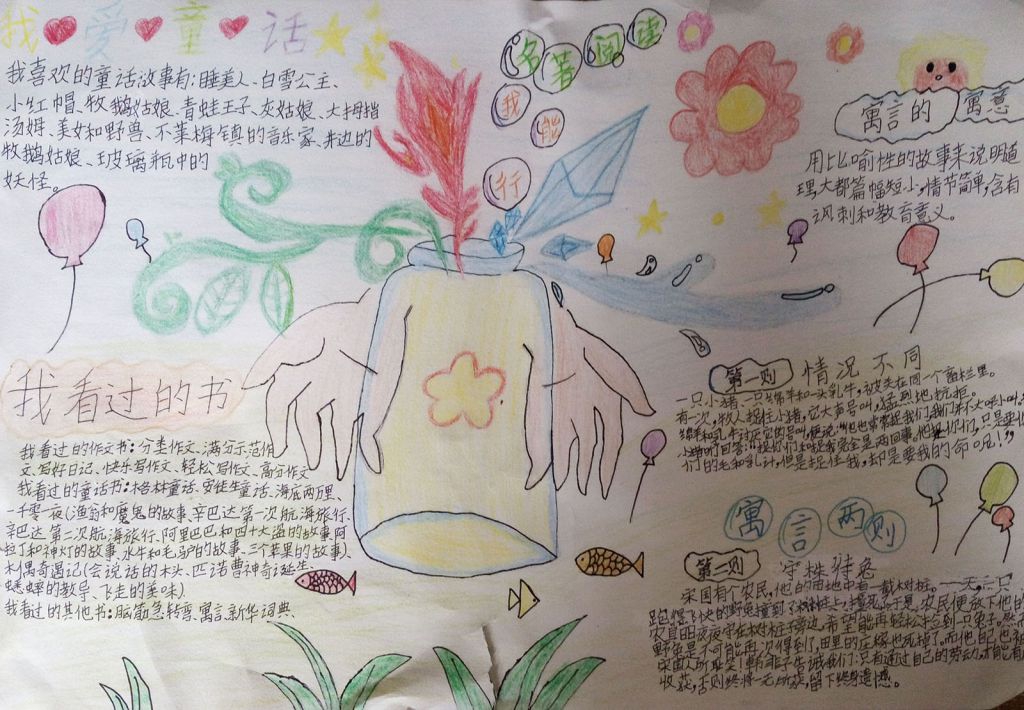 我爱童话
我喜欢的童话故事有:睡美人、白雪公主、
小红帽、牧鹅姑娘、青蛙王子、灰姑娘、大拇指
汤姆、美女和野兽、不莱梅镇的音乐家、井边的
牧鹅姑娘、玻璃瓶中的
妖怪。
名著阅读
我能
行
寓言的寓意
用比喻性的故事来说明道
理,大都篇幅短小,情节简单,含有
讽刺和教育意义。
我看过的书
我看过的作文书:分类作文、满分示范作
文、写好日记、快乐写作文、轻松写作文、高分作文
我看过的童话书:格林童话、安徒生童话、海底两万里、
一千零一夜(渔翁和魔鬼的故事、辛巴达第一次航海旅行、
辛巴达第二次航海旅行、阿里巴巴和四十大盗的故事、阿
拉丁和神灯的故事、水牛和毛驴的故事、三个苹果的故事)、
木偶奇遇记(会说话的木头、匹诺曹神奇诞生、
蟋蟀的教导、飞走的美味)
我看过的其他书:脑筋急转弯、寓言、新华词典
第一则 情况不同
一只小猪、一只绵羊和一头乳牛,被关在同一个畜栏里。
有一次,牧人捉住小猪,它大声号叫,猛烈地抗拒。
们的毛和乳汁,但是捉住我,却是要我的命呢!"
寓言两则
第二则 守株待兔
宋国有个农民,他的田地中有一截树桩。一天,一只
跑得飞快的野兔撞到了树桩上,撞死了。于是,农民便放下他的
农具日日夜夜守在树桩旁边,希望能再轻松捡到一只兔子。
野兔是不可能再次得到了,田里的庄稼也死掉了。而他自己也被
宋国人所耻笑!韩非子告诫我们:只有通过自己的劳动,才能有
收获,否则终将一无所获,留下终身遗憾。